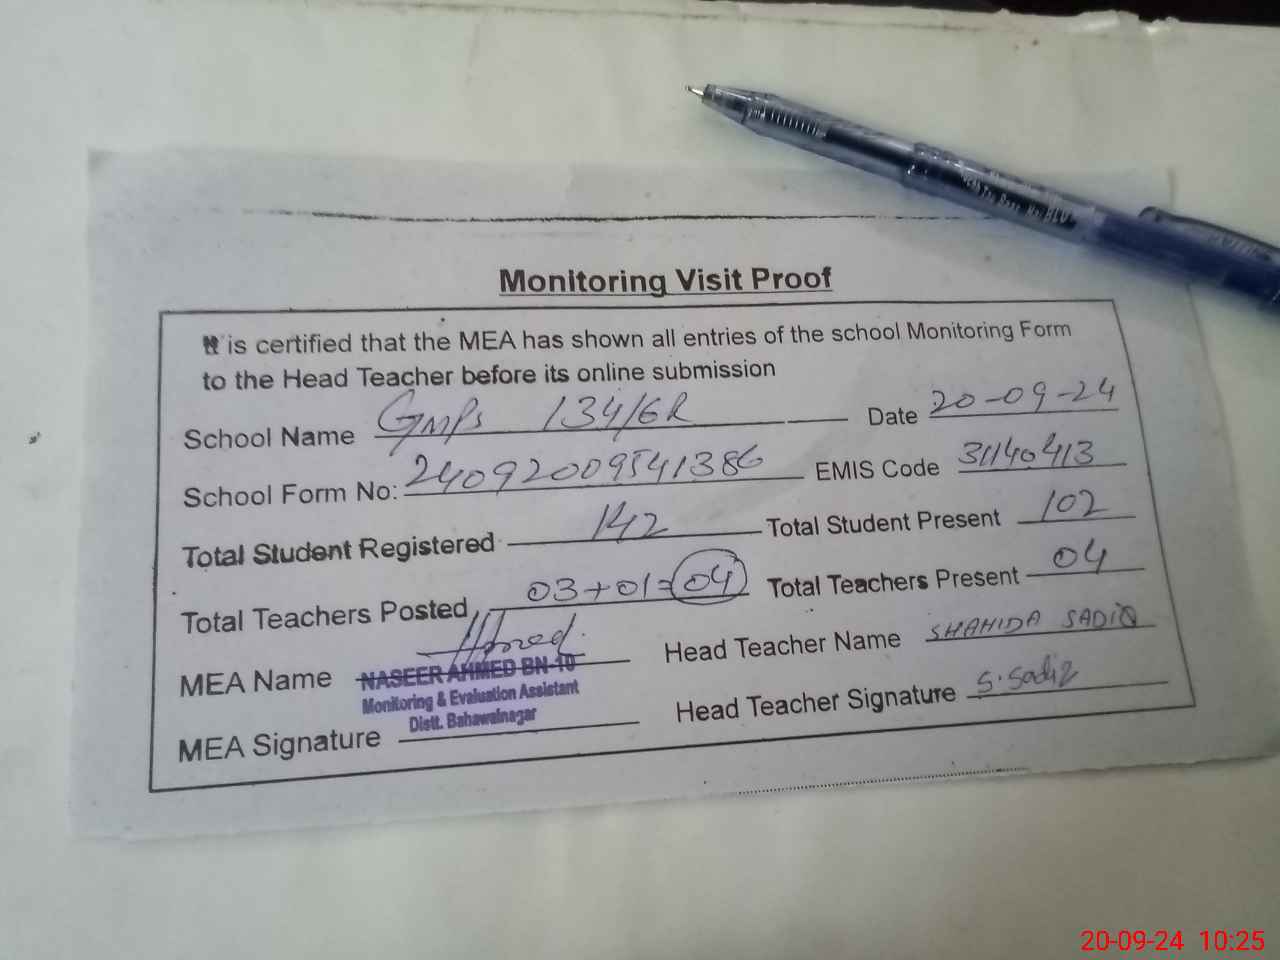 Monitoring Visit Proof
It is certified that the MEA has shown all entries of the school Monitoring Form
to the Head Teacher before its online submission
School Name GMPS 134/6R Date 20-09-24
School Form No: 24092009541386 EMIS Code 31140413
Total Student Registered 142 Total Student Present 102
Total Teachers Posted 03+01=04 Total Teachers Present 04
MEA Name NASEER AHMED BN-10 Head Teacher Name SHAHIDA SADIQ
Monitoring & Evaluation Assistant
Distt. Bahawalnagar
MEA Signature Head Teacher Signature S.Sadiq
20-09-24 10:25